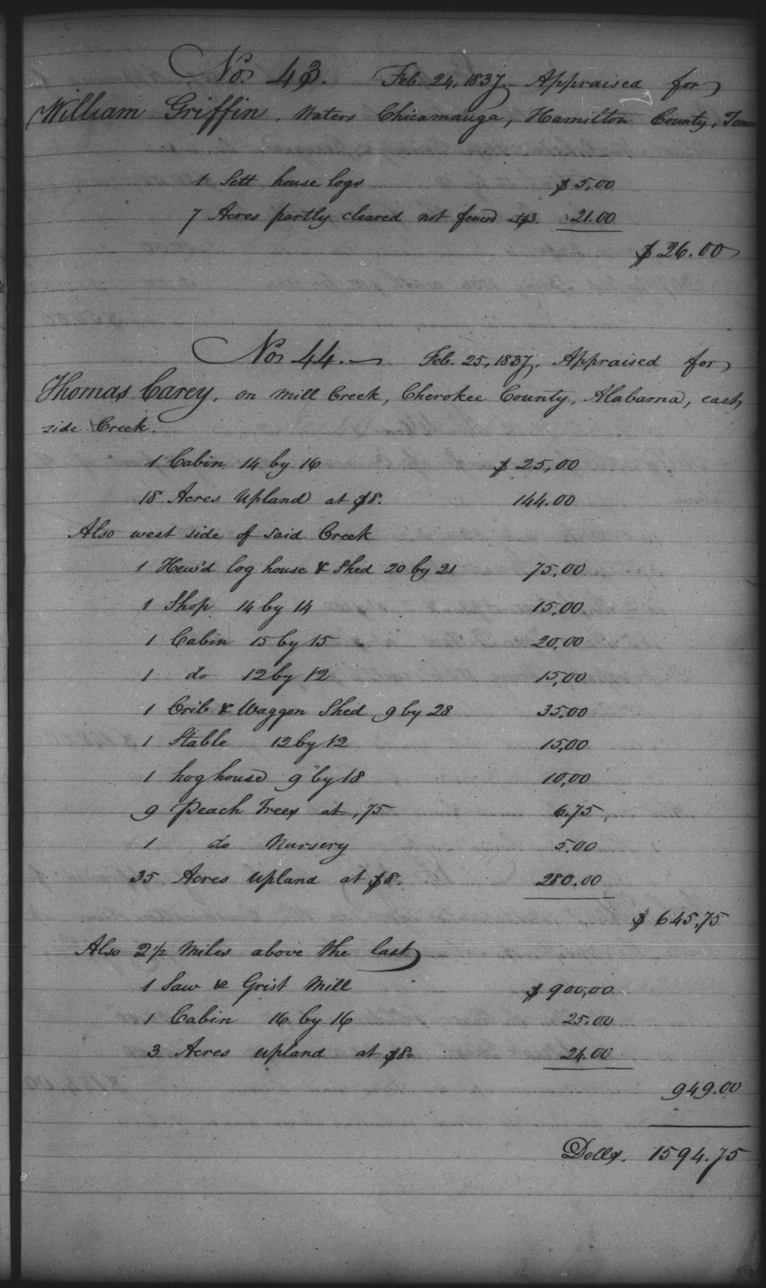 No. 43. Feb. 24, 1837. Appraised for
William Griffin, Waters Chicamauga, Hamilton County, Tenn
1 Sett house logs $ 5,00
7 Acres partly cleared not fenced $3. 21.00
$ 26.00
No. 44. Feb. 25, 1837. Appraised for
Thomas Carey, on Mill Creek, Cherokee County, Alabama, east
side Creek.
1 Cabin 14 by 16 $ 25,00
18 Acres Upland at $8. 144.00
Also west side of said Creek
1 Hew'd log house & Shed 20 by 21 75,00
1 Shop 14 by 14 15,00
1 Cabin 15 by 15 20,00
1 do 12 by 12 15,00
1 Crib & Waggon Shed 9 by 28 35.00
1 Stable 12 by 12 15,00
1 hog house 9 by 18 10,00
9 Peach Trees at ,75 6,75
1 do Nursery 5.00
35 Acres Upland at $8. 280.00
$ 645,75
Also 2 1/2 Miles above the last
1 Saw & Grist Mill $ 900,00
1 Cabin 16 by 16 25.00
3 Acres Upland at $8. 24.00
949.00
Dolls. 1594.75